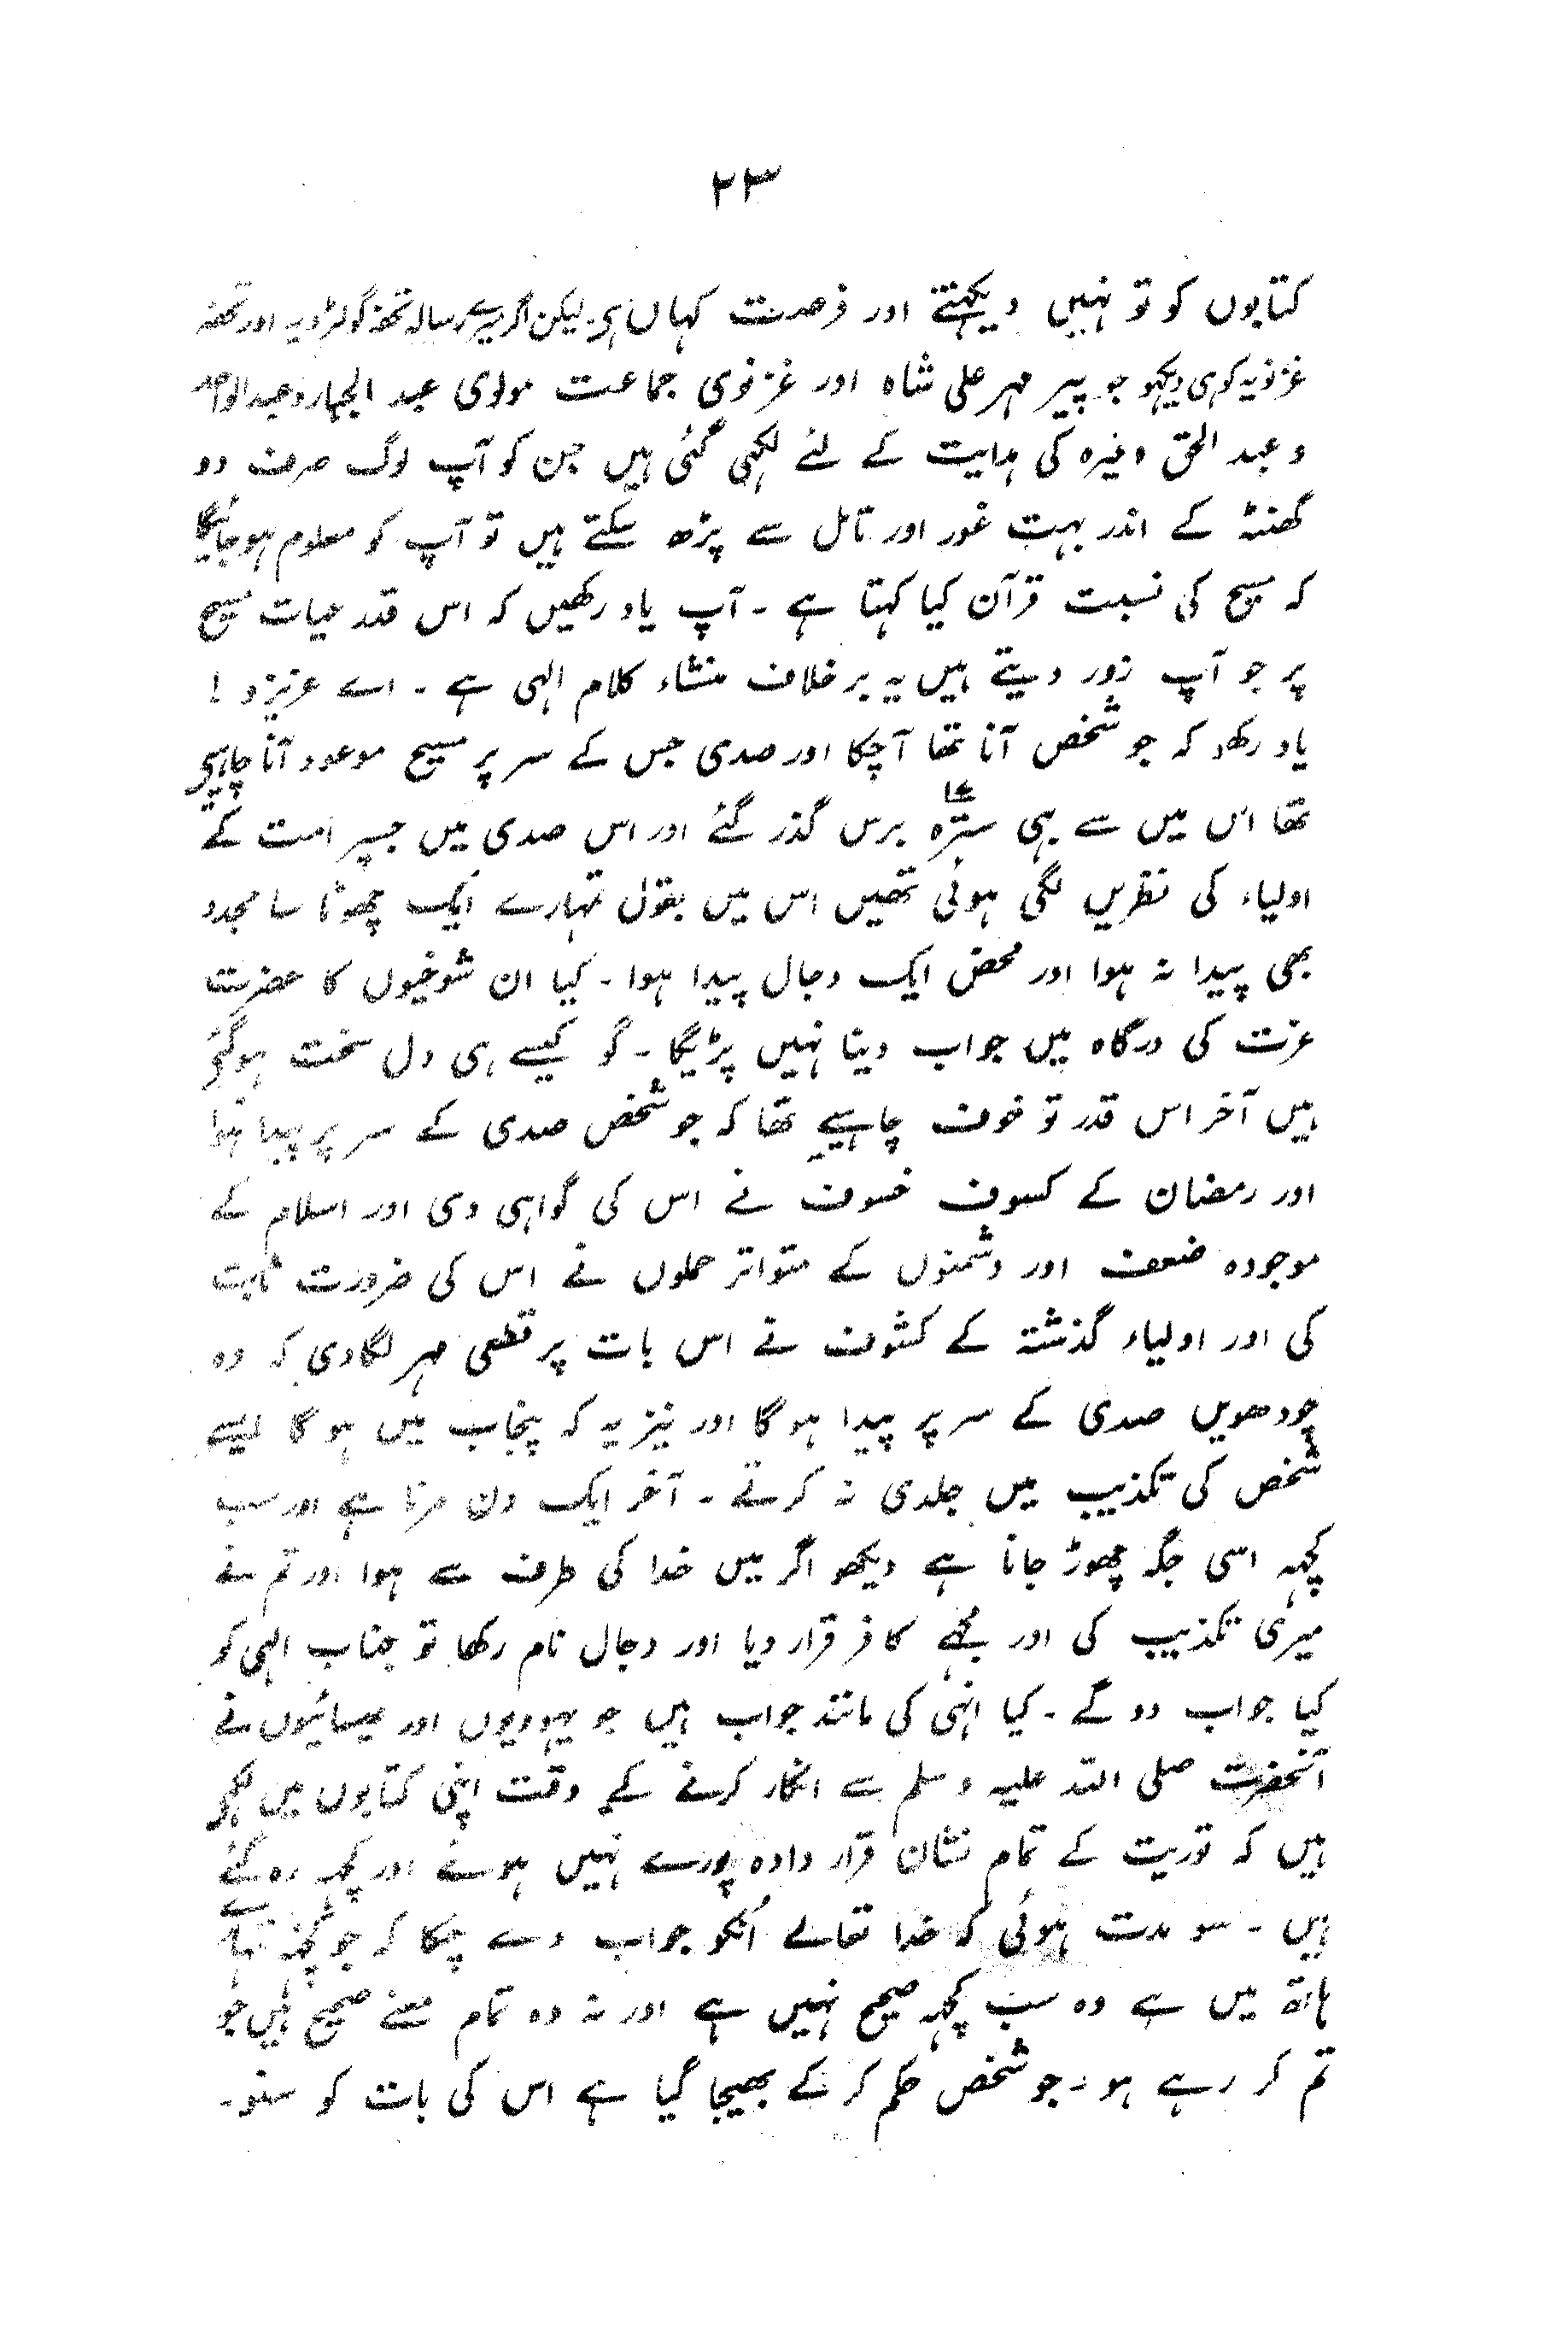 ۲۳
کتابوں کو تو نہیں دیکہتے اور فرصت کہاں ہے۔ لیکن اگر میرے رسالہ تحفہ گولڑویہ اور تحفہ
غزنویہ کو ہی دیکہو جو پیر مہر علی شاہ اور غزنوی جماعت مولوی عبد الجبار و عبد الواحد
و عبد الحق وغیرہ کی ہدایت کے لئے لکہی گئی ہیں جن کو آپ لوگ صرف دو
گھنٹہ کے اندر بہت غور اور تامل سے پڑھ سکتے ہیں تو آپ کو معلوم ہو جائیگا
کہ مسیح کی نسبت قرآن کیا کہتا ہے ۔ آپ یاد رکھیں کہ اس قدر حیات مسیح
پر جو آپ زور دیتے ہیں یہ برخلاف منشاء کلام الہی ہے ۔ اے عزیزو !
یاد رکھو کہ جو شخص آنا تھا آچکا اور صدی جس کے سر پر مسیح موعود آنا چاہیے
تھا اس میں سے بہی سترہ ۱۷ برس گذر گئے اور اس صدی میں جسپر امت کے
اولیاء کی نظریں لگی ہوئی تھیں اس میں بقول تمہارے ایک چھوٹا سا مجدد
بھی پیدا نہ ہوا اور محض ایک دجال پیدا ہوا ۔ کیا ان شوخیوں کا حضرت
عزت کی درگاہ میں جواب دینا نہیں پڑیگا ۔ گو کیسے ہی دل سخت ہوگئے
ہیں آخر اس قدر تو خوف چاہیے تھا کہ جو شخص صدی کے سر پر پیدا ہوا
اور رمضان کے کسوف خسوف نے اس کی گواہی دی اور اسلام کے
موجودہ ضعف اور دشمنوں کے متواتر حملوں نے اس کی ضرورت ثابت
کی اور اولیاء گذشتہ کے کشوف نے اس بات پر قطعی مہر لگادی کہ وہ
چودھویں صدی کے سر پر پیدا ہوگا اور نیز یہ کہ پنجاب میں ہوگا ایسے
شخص کی تکذیب میں جلدی نہ کرتے ۔ آخر ایک دن مرنا ہے اور سب
کچہہ اسی جگہ چھوڑ جانا ہے دیکھو اگر میں خدا کی طرف سے ہوا اور تم نے
میری تکذیب کی اور مجہے کافر قرار دیا اور دجال نام رکھا تو جناب الہی کو
کیا جواب دو گے ۔ کیا انہی کی مانند جواب ہیں جو یہودیوں اور عیسائیوں نے
آنحضرت صلی اللہ علیہ وسلم سے انکار کرنے کے وقت اپنی کتابوں میں لکہے
ہیں کہ توریت کے تمام نشان قرار دادہ پورے نہیں ہوئے اور کچہہ رہ گئے
ہیں ۔ سو مدت ہوئی کہ خدا تعالے اُنکو جواب دے چکا کہ جو کچہہ تمہارے
ہاتھ میں ہے وہ سب کچہہ صحیح نہیں ہے اور نہ وہ تمام معنے صحیح ہیں جو
تم کر رہے ہو ۔ جو شخص حکم کر کے بھیجا گیا ہے اس کی بات کو سنو ۔